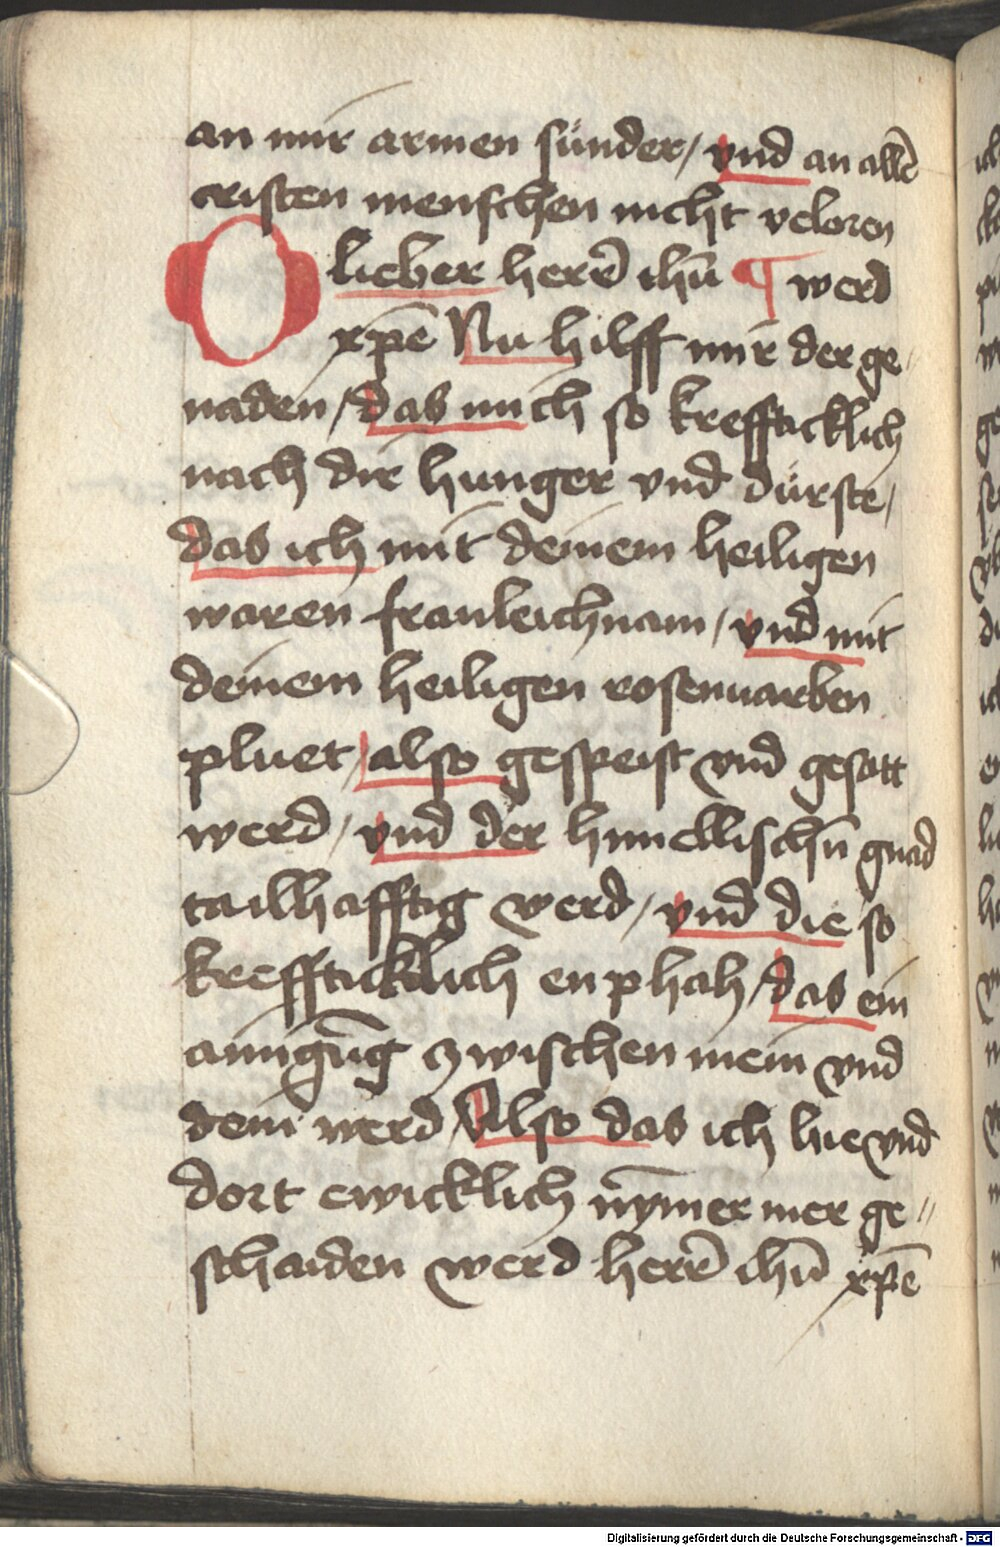 an mir armen sünder / vnd an allē
cristen menschen nicht v̓loren
O lieber herr̄ ihū ¶ werd
xp̄e Nu hilff mir der ge
naden / das mich so krefftticklich
nach dir hunger vnd dürste /
das ich mit deinem heiligen
waren franleichnam / vnd mit
deinem heiligen rosenuarben
pluet / also gespeist vnd gesatt
werd / vnd der himellischn̄ gnad
tailhafftig werd / vnd die so
kreffticklich enphah / das ein
ainigūg zwischen mein vnd
dein werd / Also das ich hie vnd
dort ewicklich nȳmer mer ge //
schaiden werd herr̄ ihū xp̄e
Digitalisierung gefördert durch die Deutsche Forschungsgemeinschaft - DFG